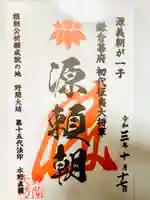 源義朝が一子
鎌倉幕府 初代征夷大将軍
源頼朝
令和三年十月十七日
頼朝公祈願成就の地 野間大坊
第十五代法印 水野真圓